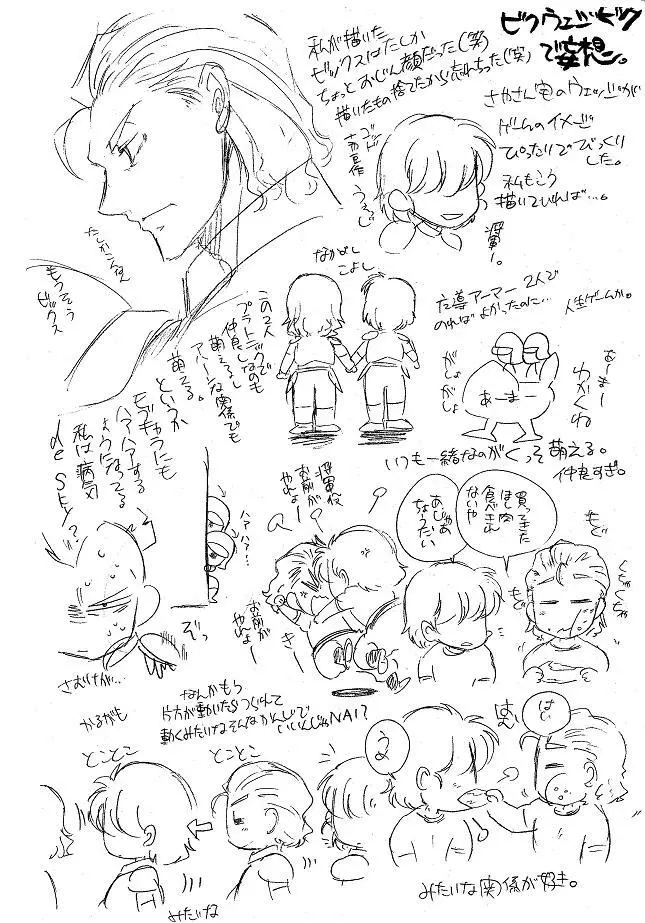 ビクウェジビック
で妄想。
私が描いた
ビックスはたしか
ちょっとおじん顔だった(笑)
描いたもの捨てたから忘れちった(笑)
さやさん宅のウェッジが
ゲームのイメージ
ぴったりでびっくり
しました。
私もこう
描いていれば…。
もうそう
ビックス
なかよし
こよし
この2人
プラトニックで
仲良しなのも
萌えるし
アハーンな関係でも
萌える。
というか
モブキャラにも
ハアハアする
ようになってる
私は病気
de SKY?
魔導アーマー 2人で
のればよかったのに…
人生ゲームか。
あーまー
がしょ
がしょ
いつも一緒なのがくって萌える。
仲良すぎ。
将軍役
お前が
やれよー
お前が
やれよー
ハアハア…
買ってきた
ほし肉
食べきれ
ないや
あじゃあ
ちょうだい
もぐ
もぐ
くちゃくちゃ
ぞっ
さむけが…
かるがも
なんかもう
片方が動いたらつられて
動くみたいなそんなかんじで
いいんじゃNAI?
とことこ
とことこ
みたいな
うめ
はい
みたいな(笑)関係が好き。